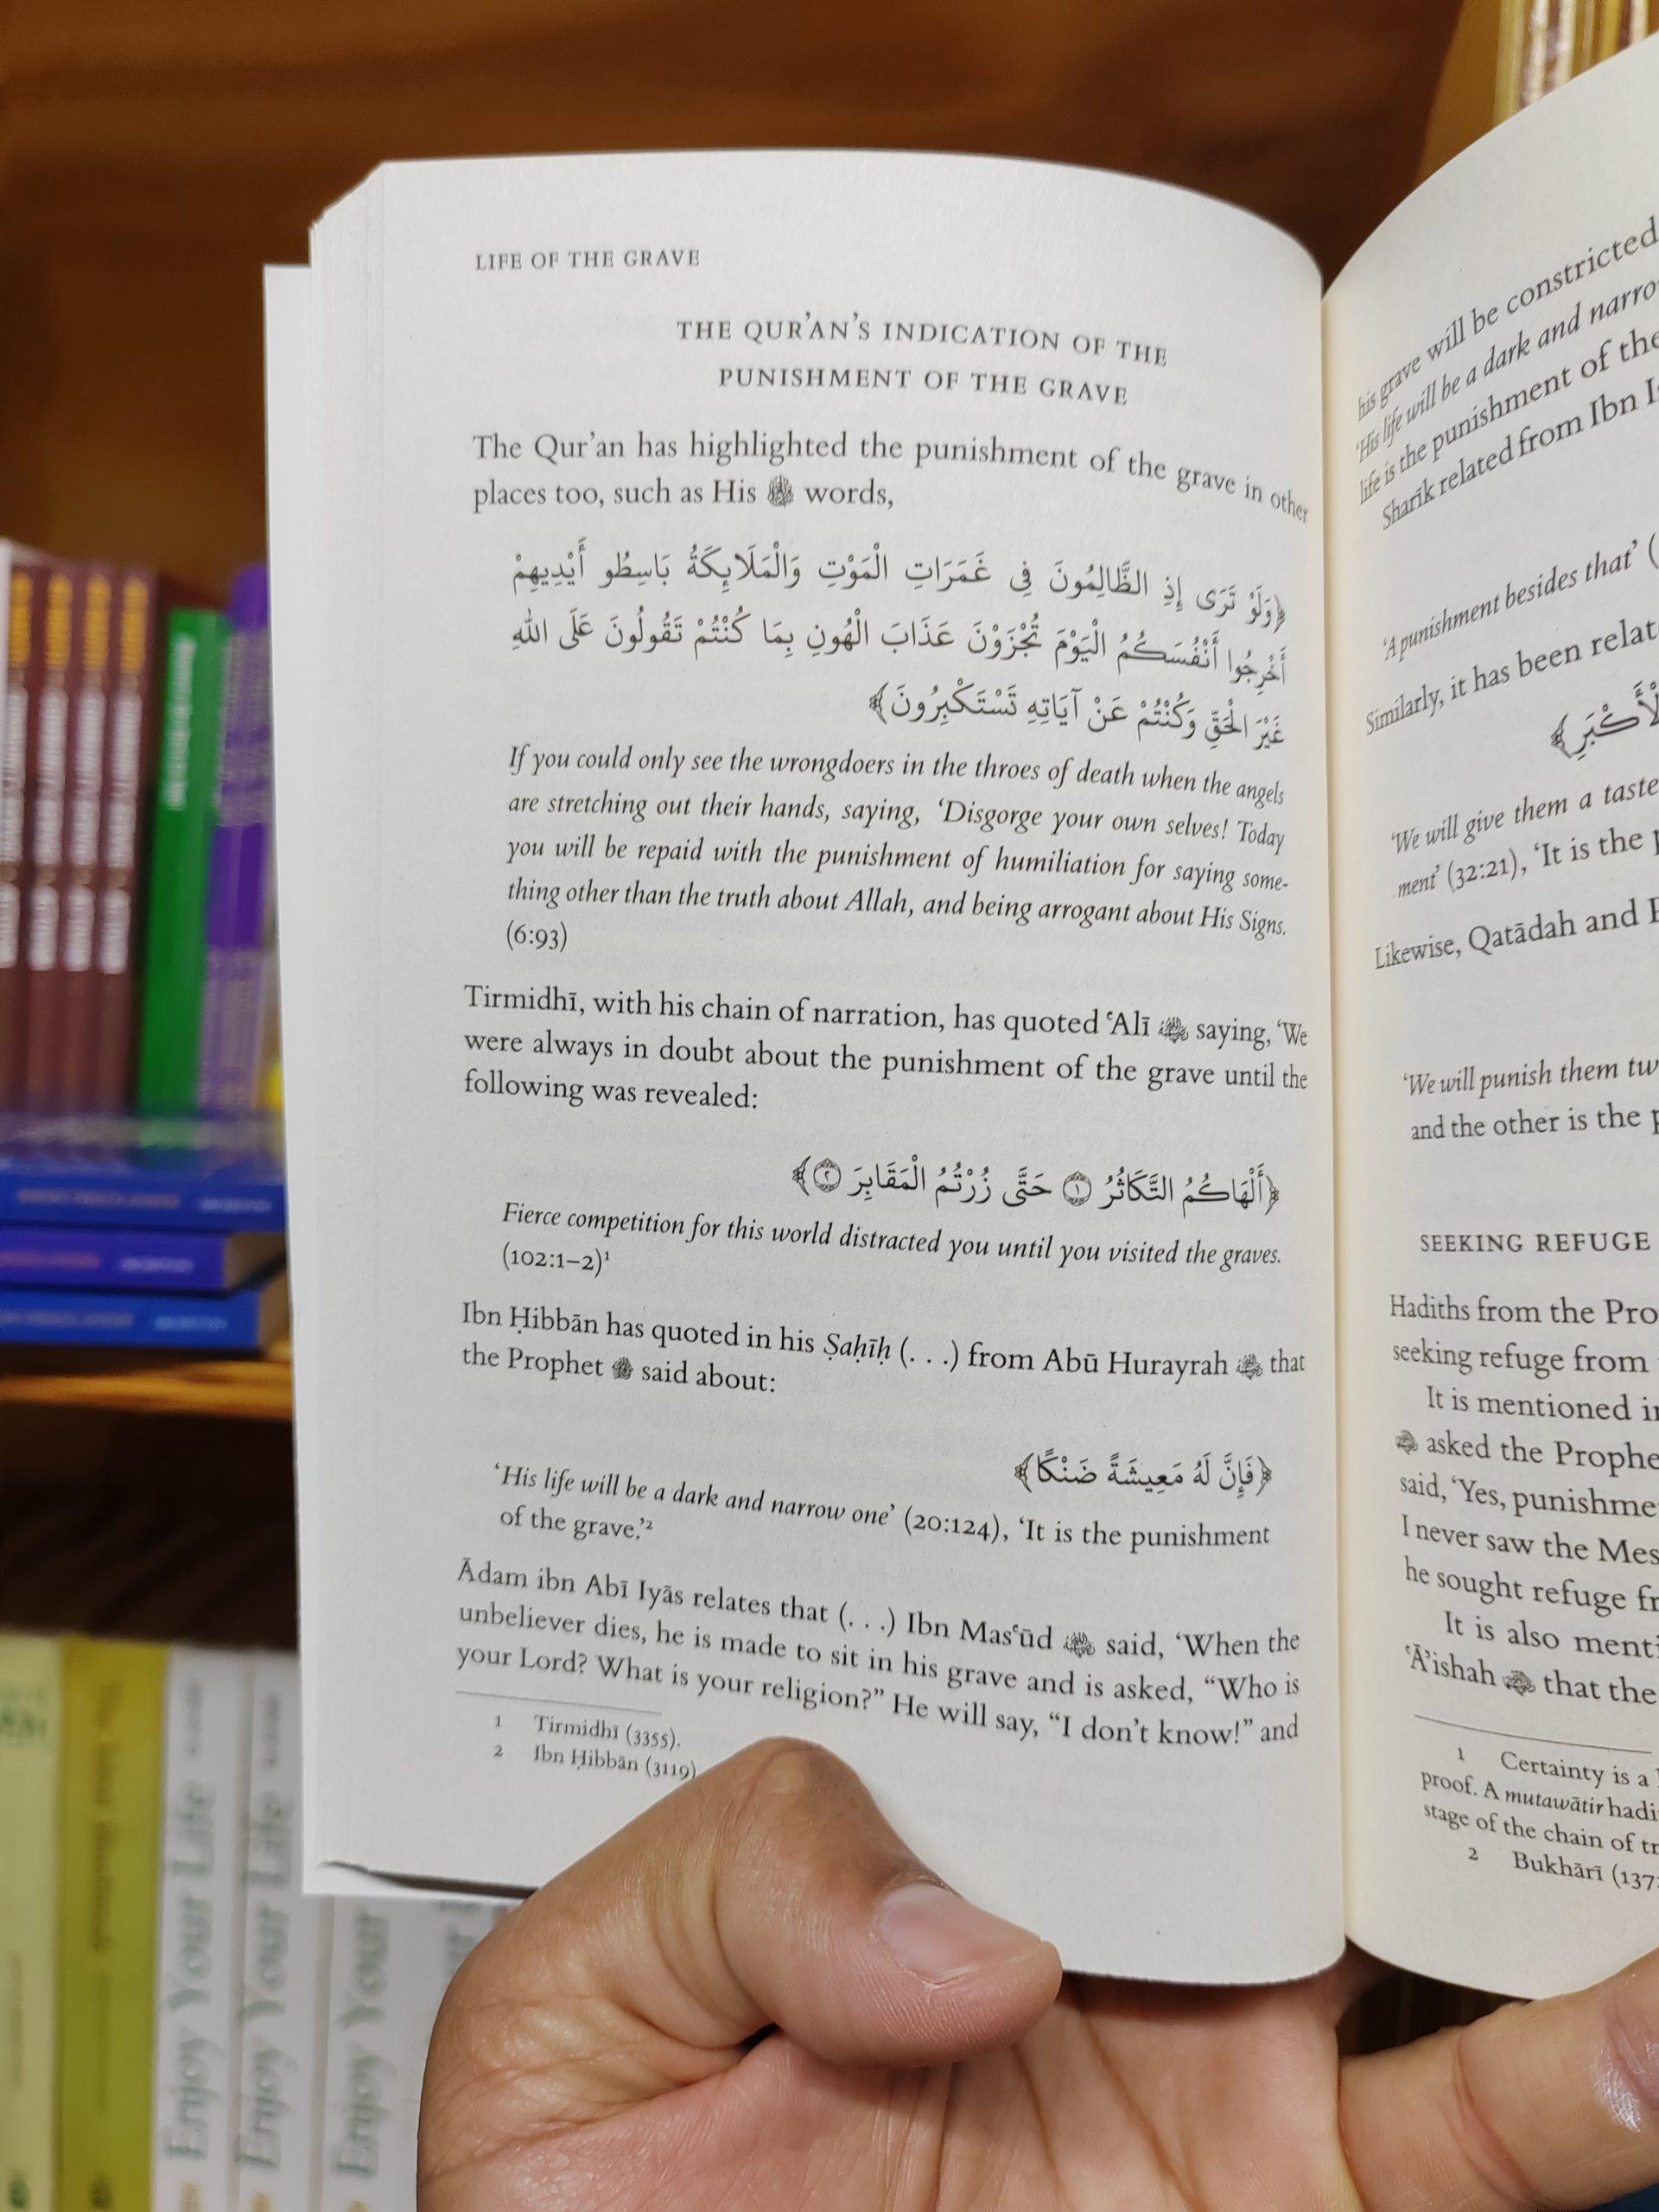 LIFE OF THE GRAVE
THE QUR'AN'S INDICATION OF THE
PUNISHMENT OF THE GRAVE
The Qur'an has highlighted the punishment of the grave in other
places too, such as His ﷻ words,
﴿وَلَوْ تَرَى إِذِ الظَّالِمُونَ فِي غَمَرَاتِ الْمَوْتِ وَالْمَلَائِكَةُ بَاسِطُو أَيْدِيهِمْ
أَخْرِجُوا أَنْفُسَكُمُ الْيَوْمَ تُجْزَوْنَ عَذَابَ الْهُونِ بِمَا كُنْتُمْ تَقُولُونَ عَلَى اللهِ
غَيْرَ الْحَقِّ وَكُنْتُمْ عَنْ آيَاتِهِ تَسْتَكْبِرُونَ﴾
If you could only see the wrongdoers in the throes of death when the angels
are stretching out their hands, saying, 'Disgorge your own selves! Today
you will be repaid with the punishment of humiliation for saying some-
thing other than the truth about Allah, and being arrogant about His Signs.
(6:93)
Tirmidhī, with his chain of narration, has quoted ʿAlī saying, 'We
were always in doubt about the punishment of the grave until the
following was revealed:
﴿أَلْهَاكُمُ التَّكَاثُرُ ١ حَتَّى زُرْتُمُ الْمَقَابِرَ ٢﴾
Fierce competition for this world distracted you until you visited the graves.
(102:1–2)¹
Ibn Ḥibbān has quoted in his Ṣaḥīḥ (. . .) from Abū Hurayrah that
the Prophet ﷺ said about:
﴿فَإِنَّ لَهُ مَعِيشَةً ضَنْكًا﴾
'His life will be a dark and narrow one' (20:124), 'It is the punishment
of the grave.'²
Ādam ibn Abī Iyās relates that (. . .) Ibn Masʿūd said, 'When the
unbeliever dies, he is made to sit in his grave and is asked, "Who is
your Lord? What is your religion?" He will say, "I don't know!" and
1 Tirmidhī (3355).
2 Ibn Ḥibbān (3119)
his grave will be constricted
'His life will be a dark and narro
life is the punishment of the
Sharīk related from Ibn I
'A punishment besides that' (
Similarly, it has been relat
الْأَكْبَرِ﴾
'We will give them a taste
ment' (32:21), 'It is the p
Likewise, Qatādah and
'We will punish them tw
and the other is the p
SEEKING REFUGE
Hadiths from the Pro
seeking refuge from
It is mentioned in
asked the Prophe
said, 'Yes, punishme
I never saw the Mes
he sought refuge fr
It is also menti
ʿĀ'ishah that the
1 Certainty is a
proof. A mutawātir hadi
stage of the chain of tr
2 Bukhārī (137
Enjoy Your Life
Enjoy Your Life
Enjoy Your